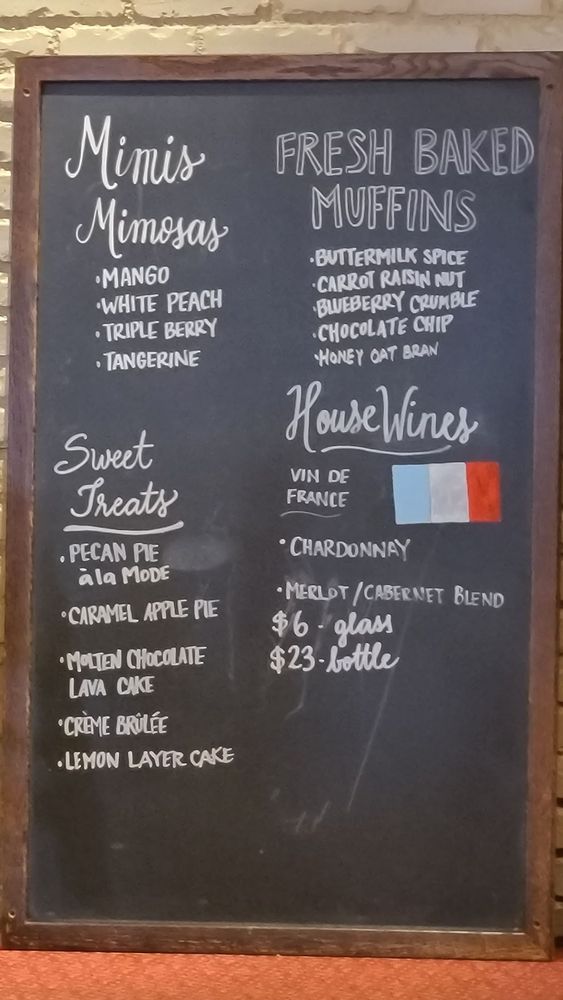 Mimis
Mimosas
·MANGO
·WHITE PEACH
·TRIPLE BERRY
·TANGERINE
Sweet
Treats
·PECAN PIE
à la MODE
·CARAMEL APPLE PIE
·MOLTEN CHOCOLATE
LAVA CAKE
·CRÈME BRÛLÉE
·LEMON LAYER CAKE
FRESH BAKED
MUFFINS
·BUTTERMILK SPICE
·CARROT RAISIN NUT
·BLUEBERRY CRUMBLE
·CHOCOLATE CHIP
·HONEY OAT BRAN
House Wines
VIN DE
FRANCE
·CHARDONNAY
·MERLOT/CABERNET BLEND
$6 - glass
$23-bottle